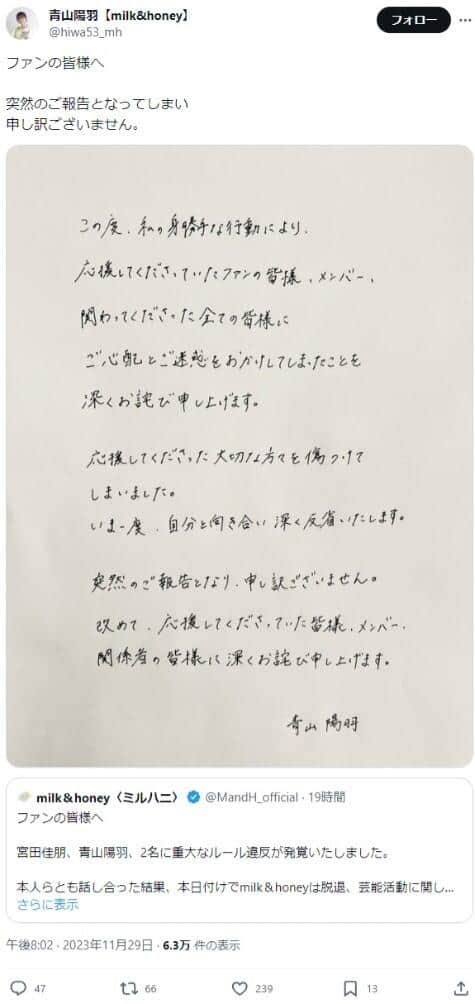 青山陽羽【milk&honey】
@hiwa53_mh
フォロー
ファンの皆様へ
突然のご報告となってしまい
申し訳ございません。
この度、私の身勝手な行動により、
応援してくださっていたファンの皆様、メンバー、
関わってくださった全ての皆様に
ご心配とご迷惑をおかけしてしまったことを
深くお詫び申し上げます。
応援してくださった大切な方々を傷つけて
しまいました。
いま一度、自分と向き合い深く反省いたします。
突然のご報告となり、申し訳ございません。
改めて、応援してくださっていた皆様、メンバー、
関係者の皆様に深くお詫び申し上げます。
青山 陽羽
milk&honey〈ミルハニ〉 @MandH_official · 19時間
ファンの皆様へ
宮田佳朋、青山陽羽、2名に重大なルール違反が発覚いたしました。
本人らとも話し合った結果、本日付けでmilk&honeyは脱退、芸能活動に関し...
さらに表示
午後8:02 · 2023年11月29日 · 6.3万 件の表示
47 66 239 13